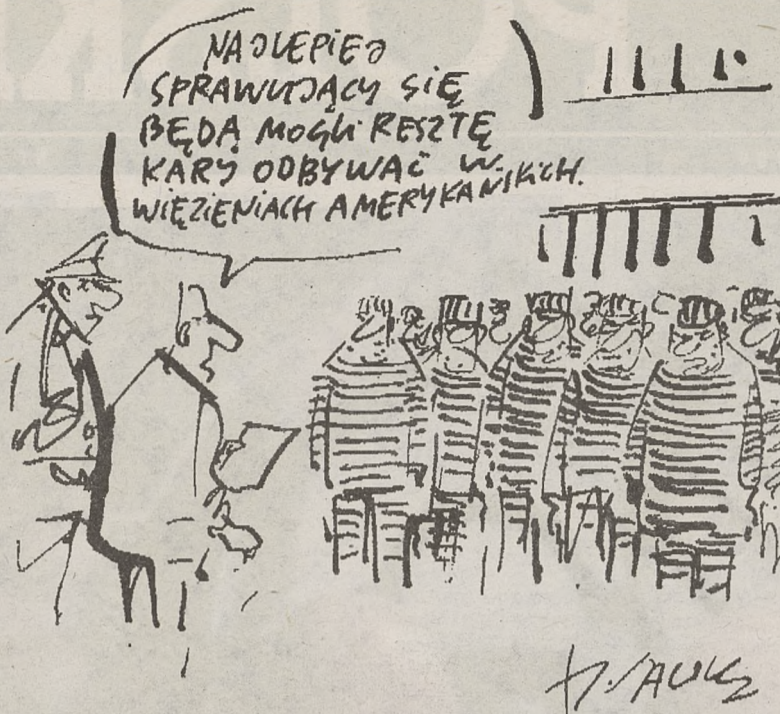 NAJLEPIEJ
SPRAWUJĄCY SIĘ
BĘDĄ MOGLI RESZTĘ
KARY ODBYWAĆ W
WIĘZIENIACH AMERYKAŃSKICH.